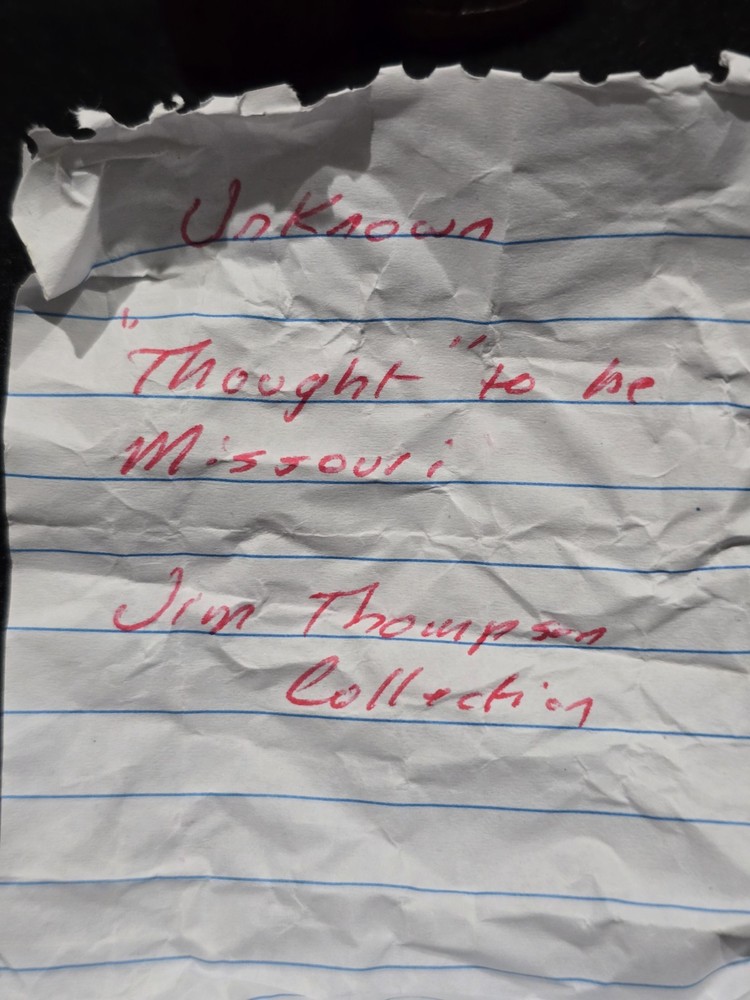 Unknown
"Thought" to be
Missouri
Jim Thompson
Collection